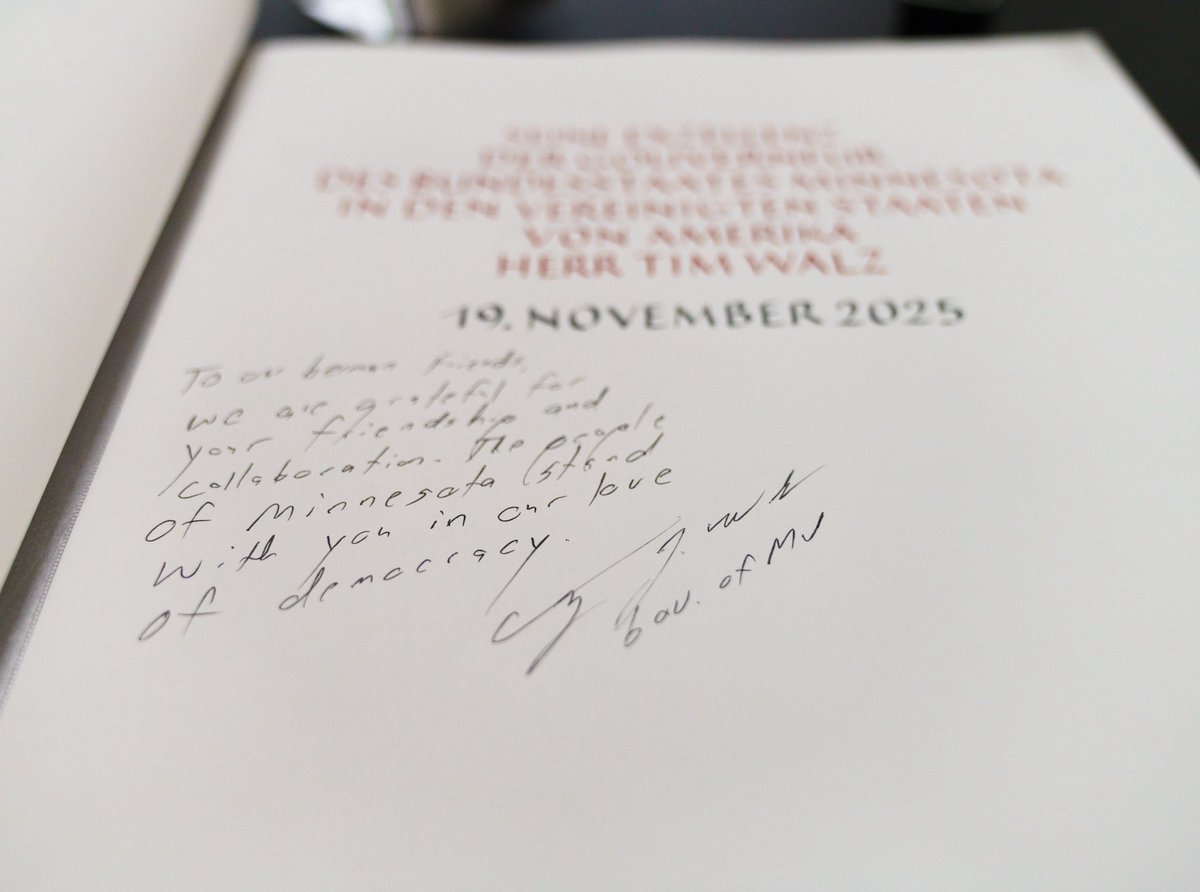 SEINE EXZELLENZ
DER GOUVERNEUR
DES BUNDESSTAATES MINNESOTA
IN DEN VEREINIGTEN STAATEN
VON AMERIKA
HERR TIM WALZ
19. NOVEMBER 2025
To our German friends,
we are grateful for
your friendship and
collaboration. The people
of Minnesota stand
with you in our love
of democracy.
Gov. of MN